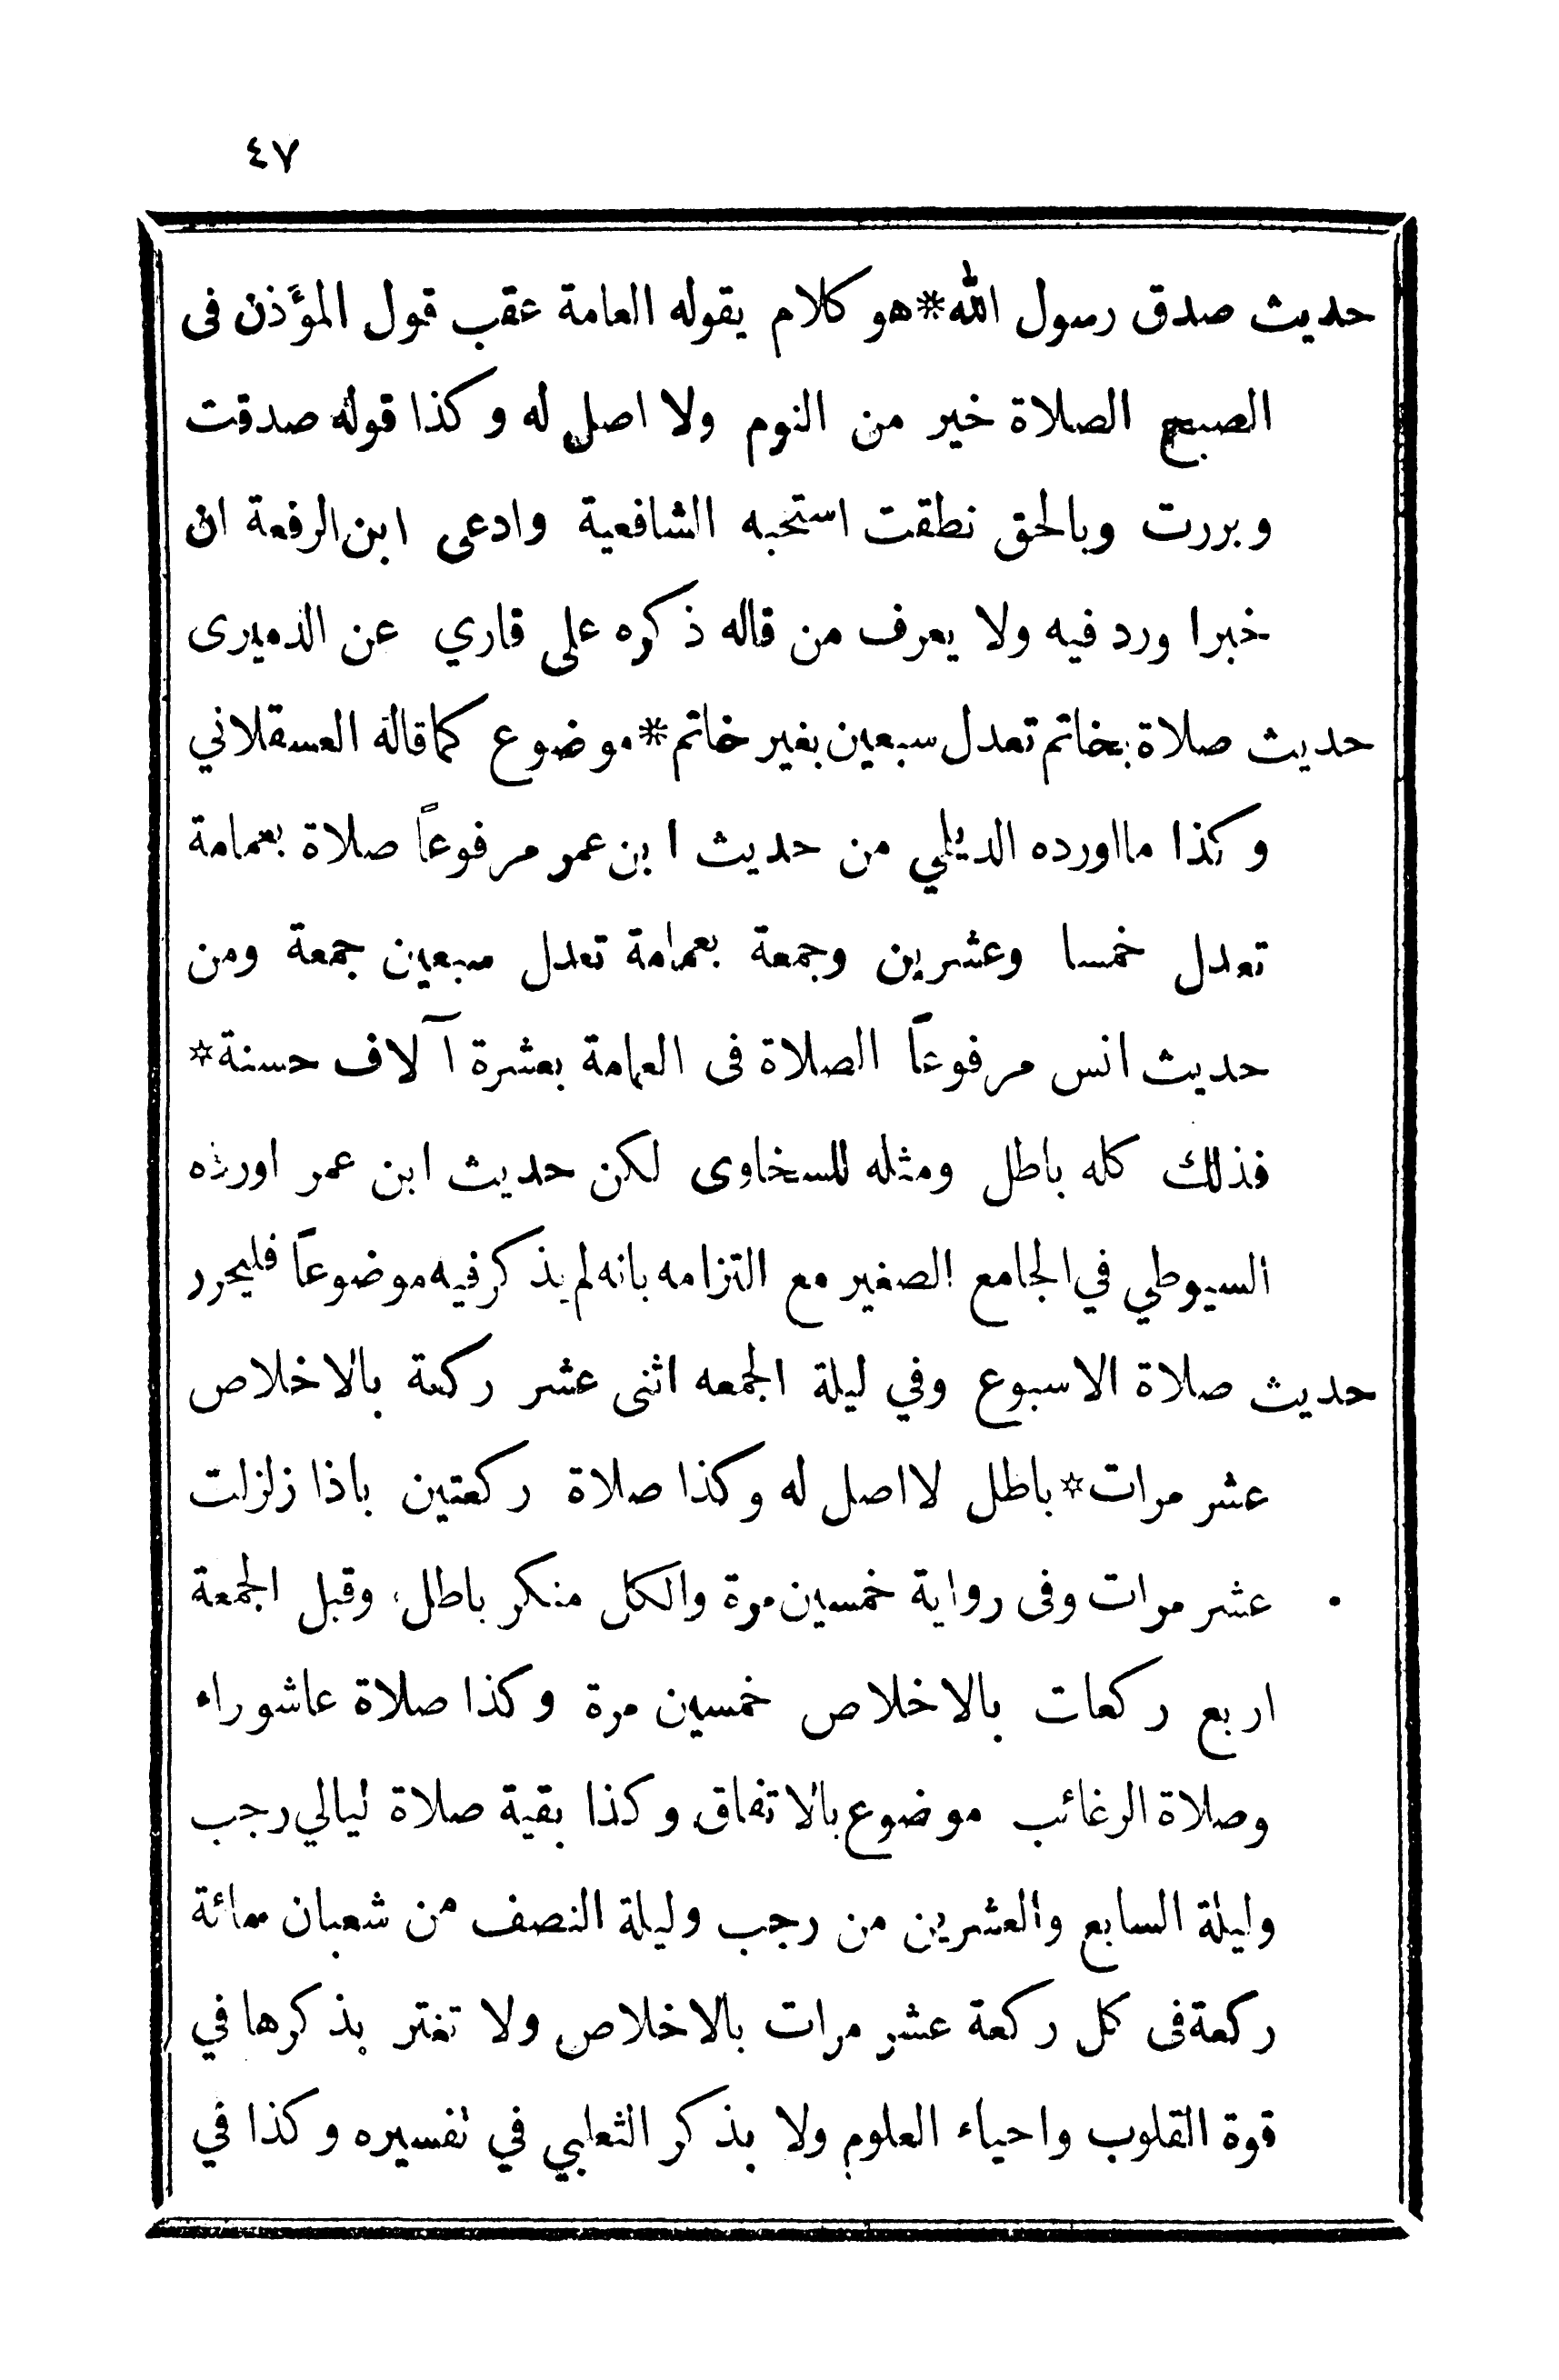 ٤٧
حديث صدق رسول الله*هو كلام يقوله العامة عقب قول المؤذن فى
الصبح الصلاة خير من النوم ولا اصل له وكذا قوله صدقت
وبررت وبالحق نطقت استحبه الشافعية وادعى ابن الرفعة ان
خبرا ورد فيه ولا يعرف من قاله ذكره على قاري عن الدميرى
حديث صلاة بخاتم تعدل سبعين بغير خاتم*موضوع كما قاله العسقلاني
وكذا ما اورده الديلمي من حديث ابن عمر مرفوعاً صلاة بعمامة
تعدل خمسا وعشرين وجمعة بعمامة تعدل سبعين جمعة ومن
حديث انس مرفوعاً الصلاة فى العمامة بعشرة آلاف حسنة*
فذلك كله باطل ومثله للسخاوى لكن حديث ابن عمر اورده
السيوطي في الجامع الصغير مع التزامه بانه لم يذكر فيه موضوعاً فليحرر
حديث صلاة الاسبوع وفي ليلة الجمعه اثنى عشر ركعة بالاخلاص
عشر مرات*باطل لا اصل له وكذا صلاة ركعتين باذا زلزلت
عشر مرات وفى رواية خمسين مرة والكل منكر باطل، وقبل الجمعة
اربع ركعات بالاخلاص خمسين مرة وكذا صلاة عاشوراء
وصلاة الرغائب موضوع بالاتفاق وكذا بقية صلاة ليالي رجب
وليلة السابع والعشرين من رجب وليلة النصف من شعبان بمائة
ركعة فى كل ركعة عشر مرات بالاخلاص ولا تغتر بذكرها في
قوة القلوب واحياء العلوم ولا بذكر الثعلبي في تفسيره وكذا في